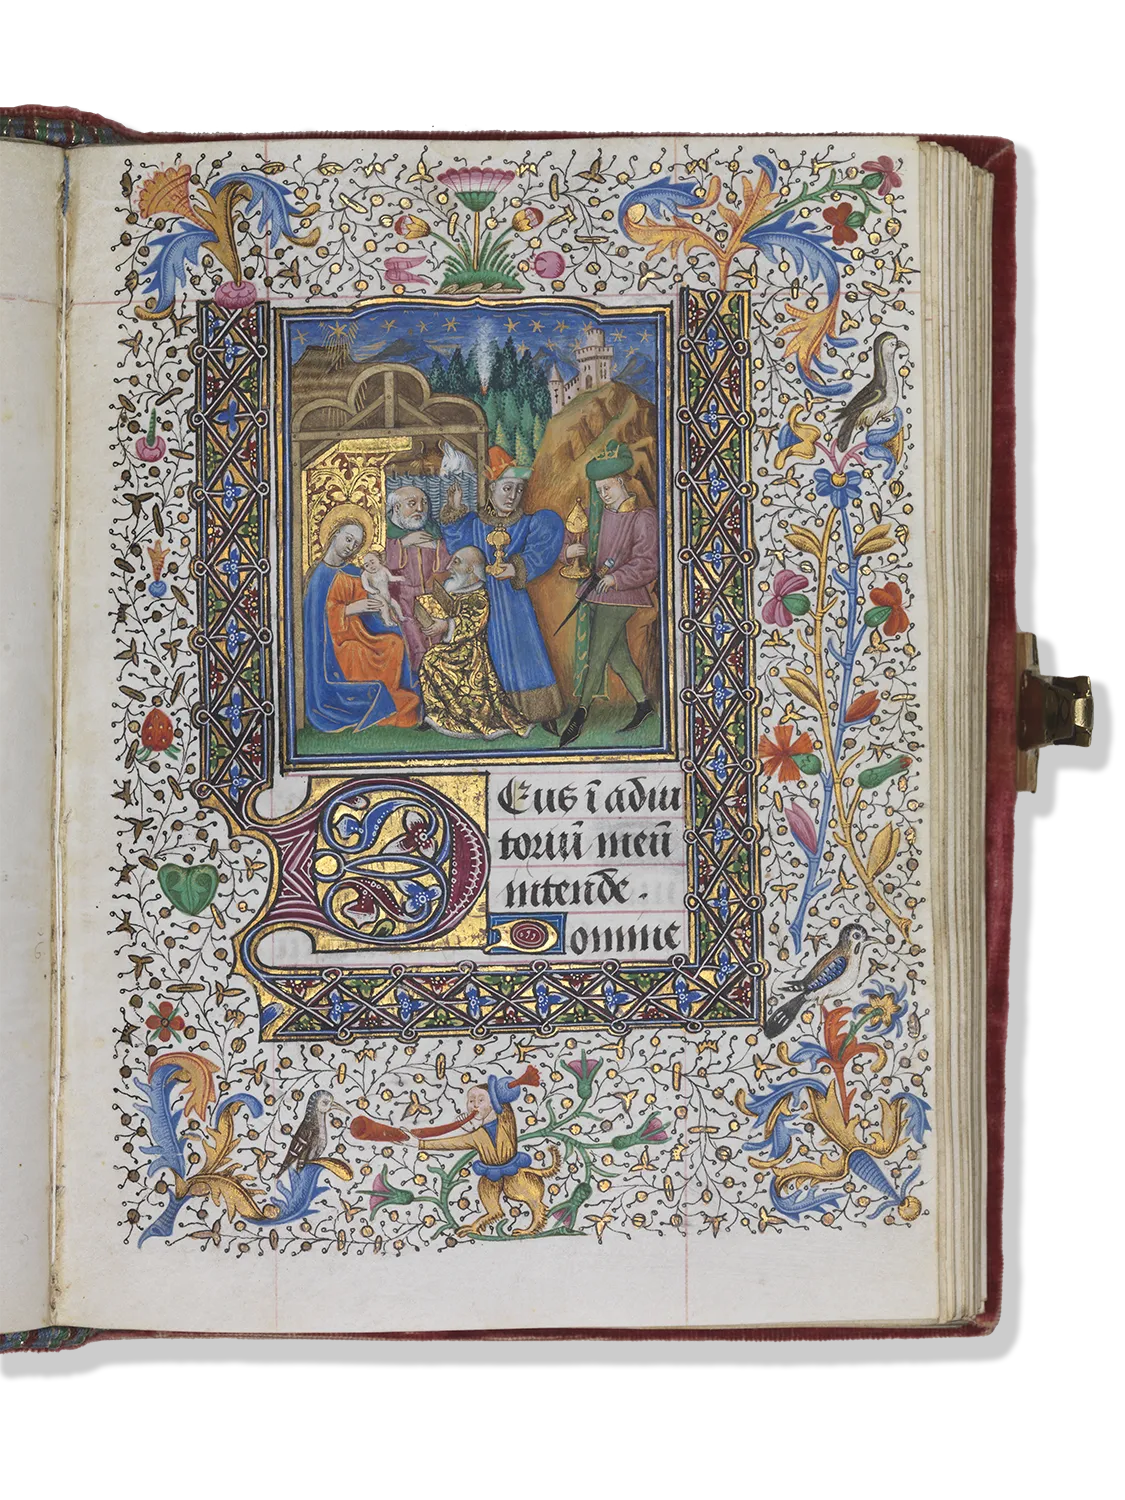 Deus ī adiu
toriū meū
intende.
Domine